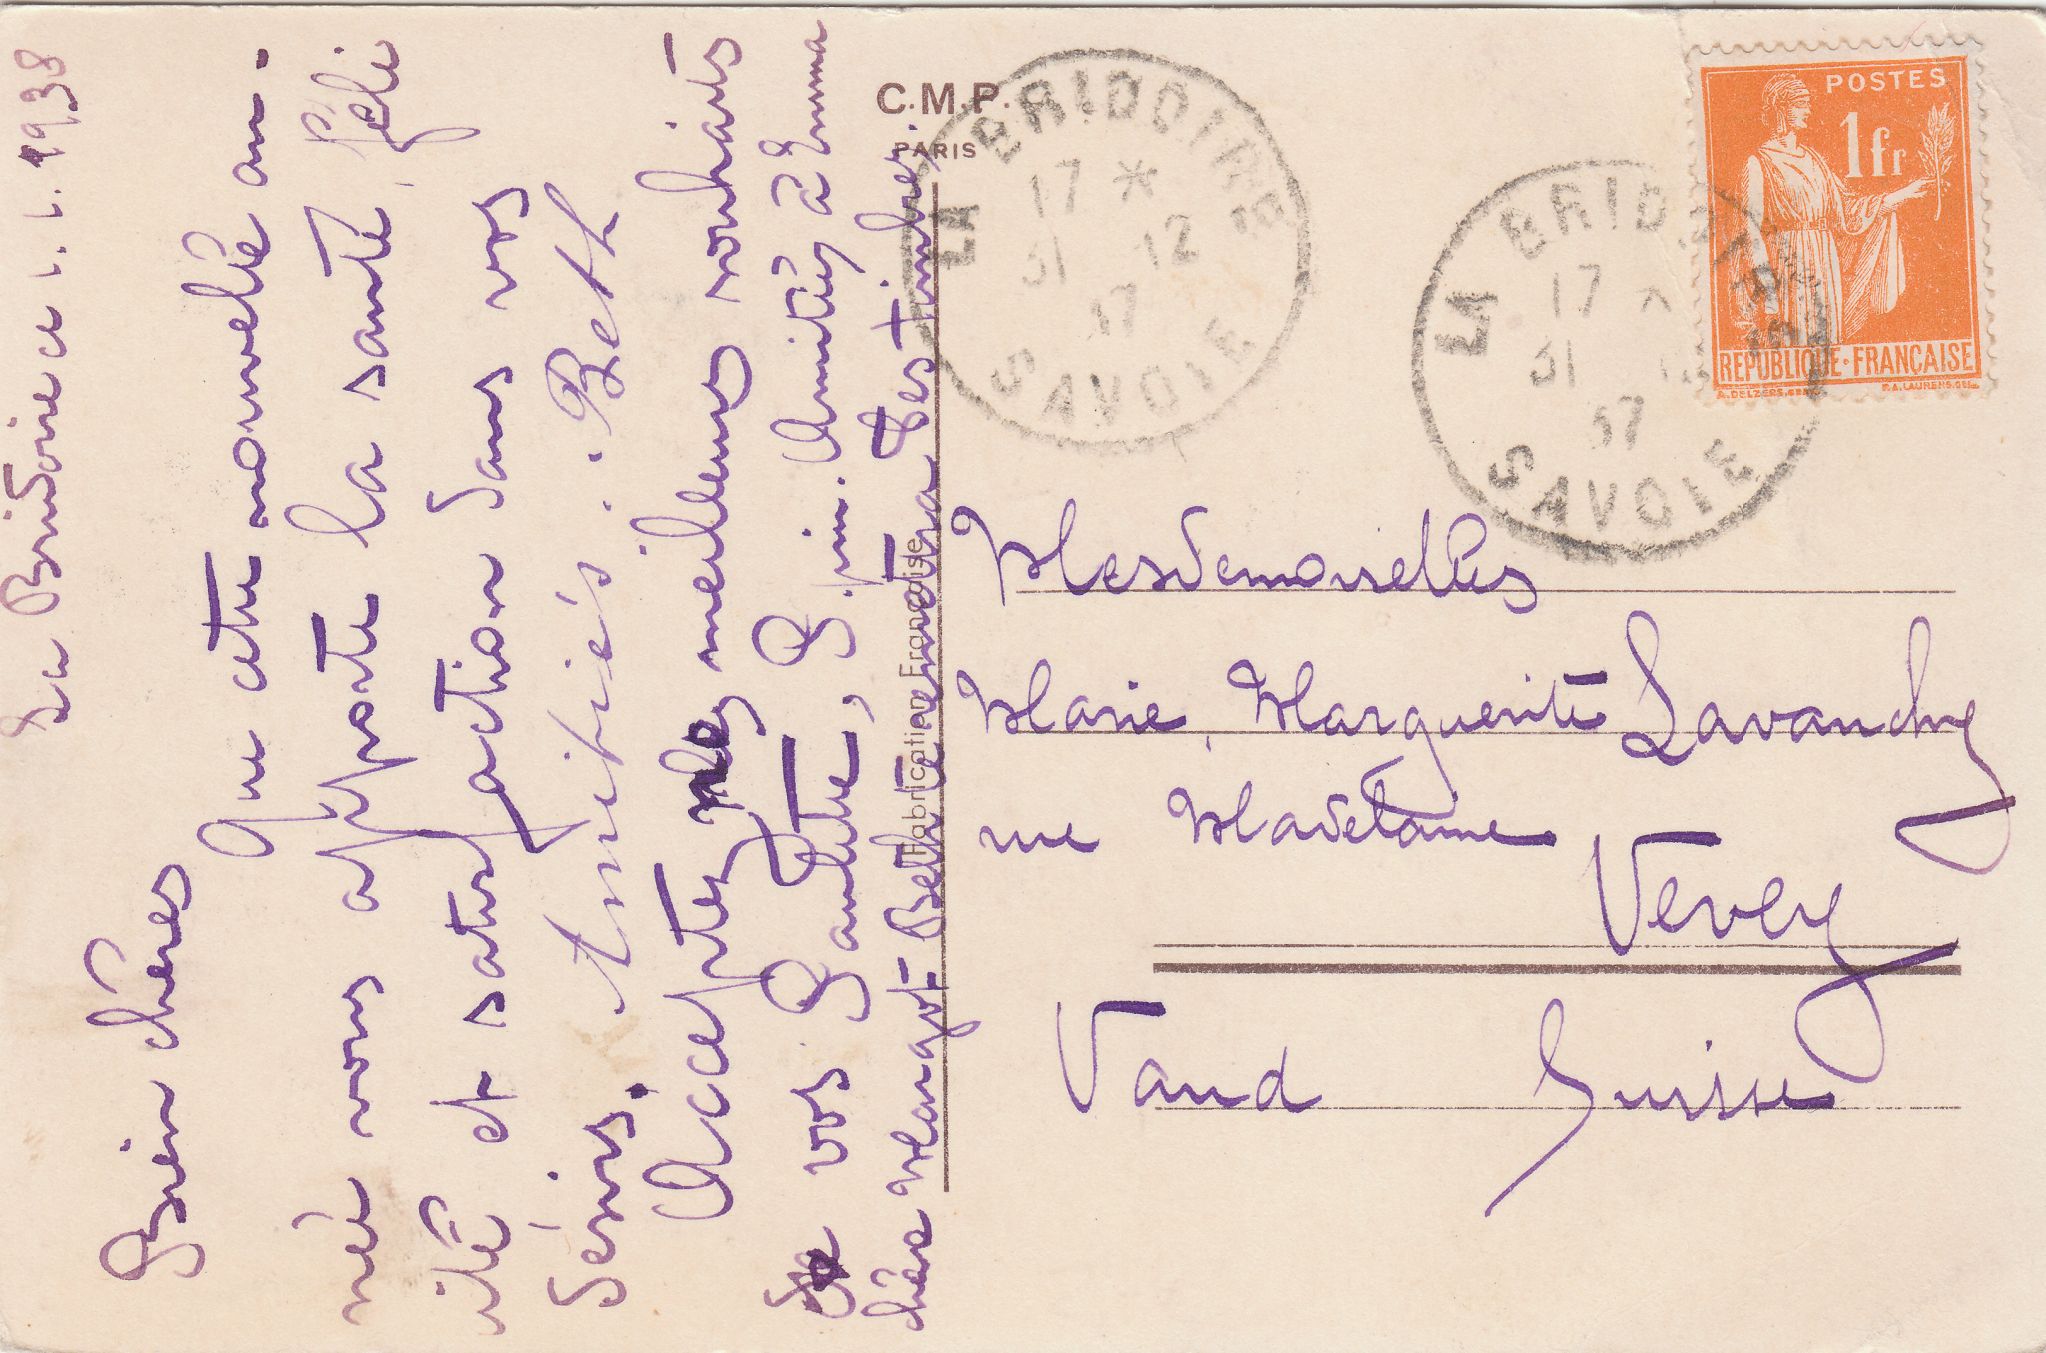 La Bridoire le 1.1.1938
Bien chères
Que cette nouvelle an-
née vous apporte la santé, féli
cité et satisfaction dans vos
désirs. Amitiés : Beth
Acceptez mes meilleurs souhaits
de vos Paulette, P. Amitiés à Emma
chère Margot. Beth te remettra tes timbres.
C.M.P.
PARIS
Fabrication Française
LA BRIDOIRE
17 *
31 12
37
SAVOIE
LA BRIDOIRE
17 *
31
37
SAVOIE
POSTES
1fr
REPUBLIQUE·FRANÇAISE
Mesdemoiselles
Marie, Marguerite Lavanchy
rue Madeleine
Vevey
Vaud Suisse